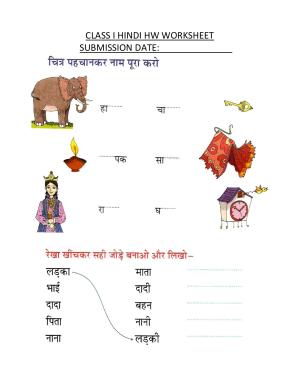 CLASS I HINDI HW WORKSHEET
SUBMISSION DATE:
चित्र पहचानकर नाम पूरा करो
हा चा
पक सा
रा घ
रेखा खींचकर सही जोड़े बनाओ और लिखो–
लड़का माता
भाई दादी
दादा बहन
पिता नानी
नाना लड़की